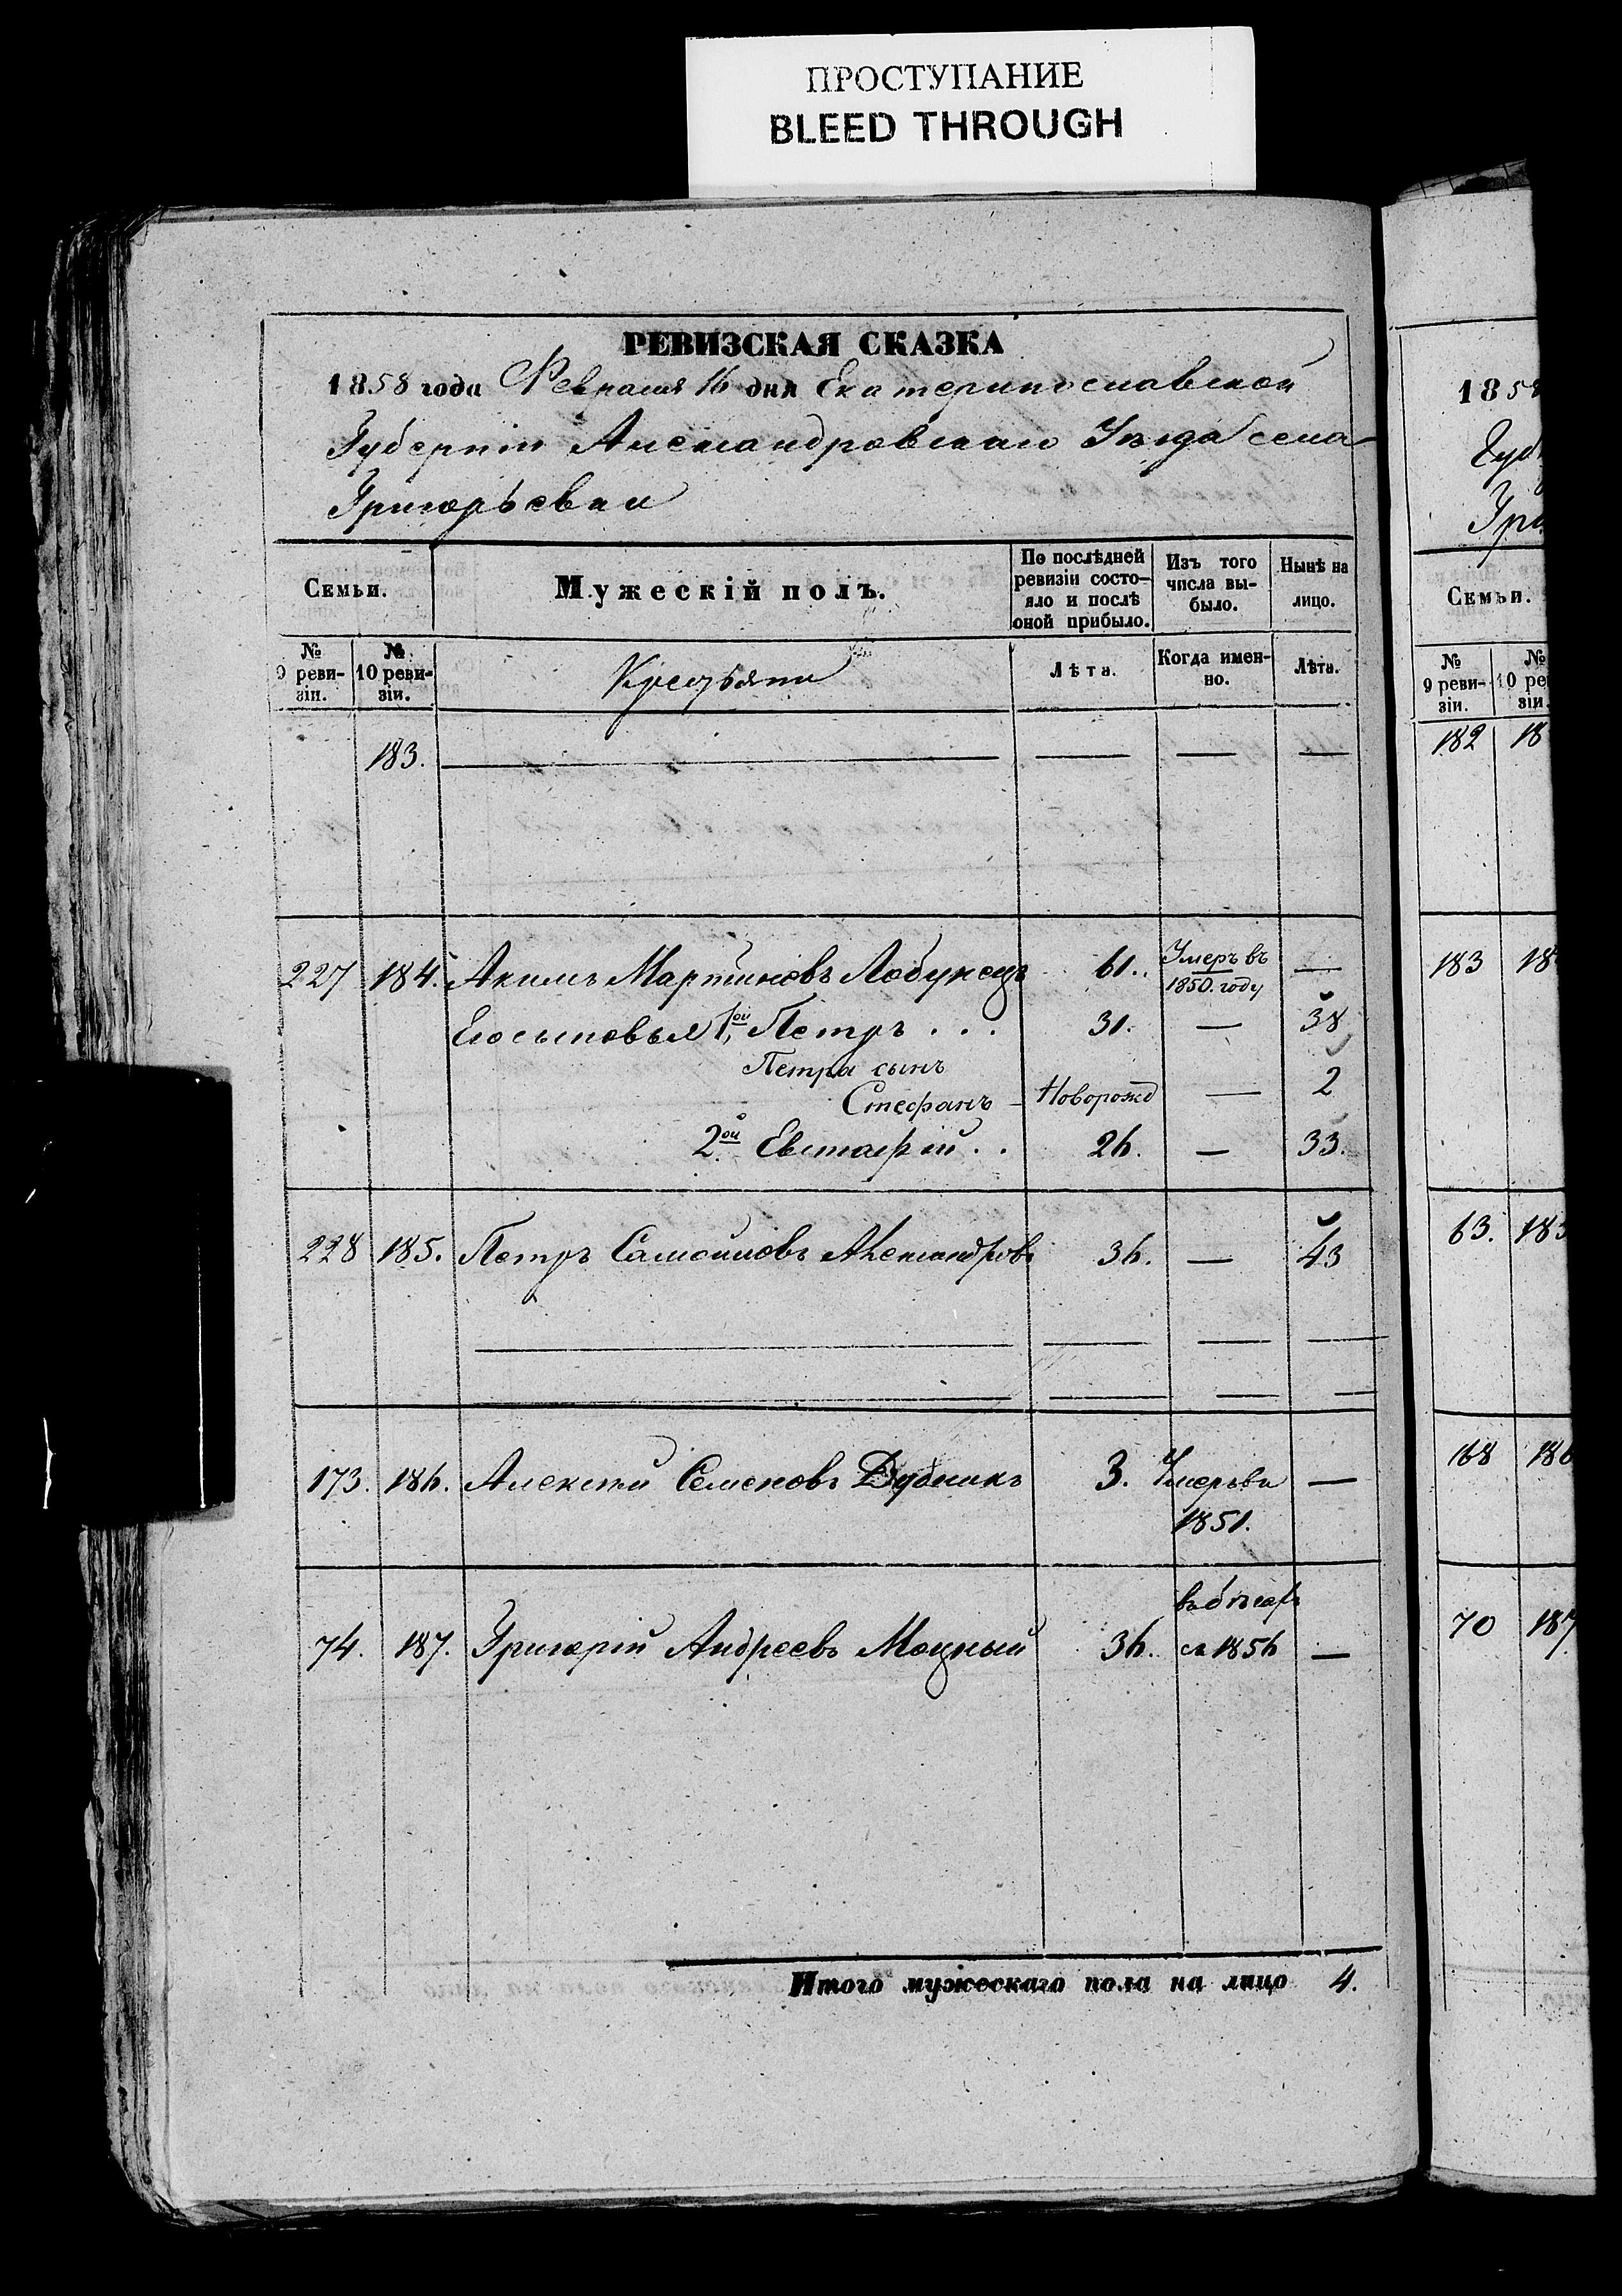 ПРОСТУПАНИЕ
BLEED THROUGH
РЕВИЗСКАЯ СКАЗКА
1858 года Февраля 16 дня Екатеринославской
Губерніи Александровскаго Уѣзда села
Григорьевки
Семьи.
Мужескій полъ.
По послѣдней ревизіи состо-
яло и послѣ
оной прибыло.
Изъ того
числа вы-
было.
Нынѣ на
лицо.
№ 9 реви-
зіи.
№ 10 реви-
зіи.
Крестьяни
Лѣта.
Когда имен-
но.
Лѣта.
183.
227 184. Акимъ Мартиновъ Лобунецъ 61. Умеръ въ 1850. году —
Его сыновья 1ой Петръ . . . 31. — 38
Петра сынъ
Стефанъ — Новорожд — 2
2ой Евстафій . . 26. — 33.
228 185. Петръ Самойловъ Александровъ 36. — 43
173. 186. Алексѣй Семеновъ Дубникъ 3. Умеръ въ —
1851.
74. 187. Григорій Андреевъ Моцный 36. съ 1856 —
Итого мужескаго пола на лицо 4.
1858
Семьи.
№
9 реви-
зіи.
182
183
63. 185
168 186
70 187